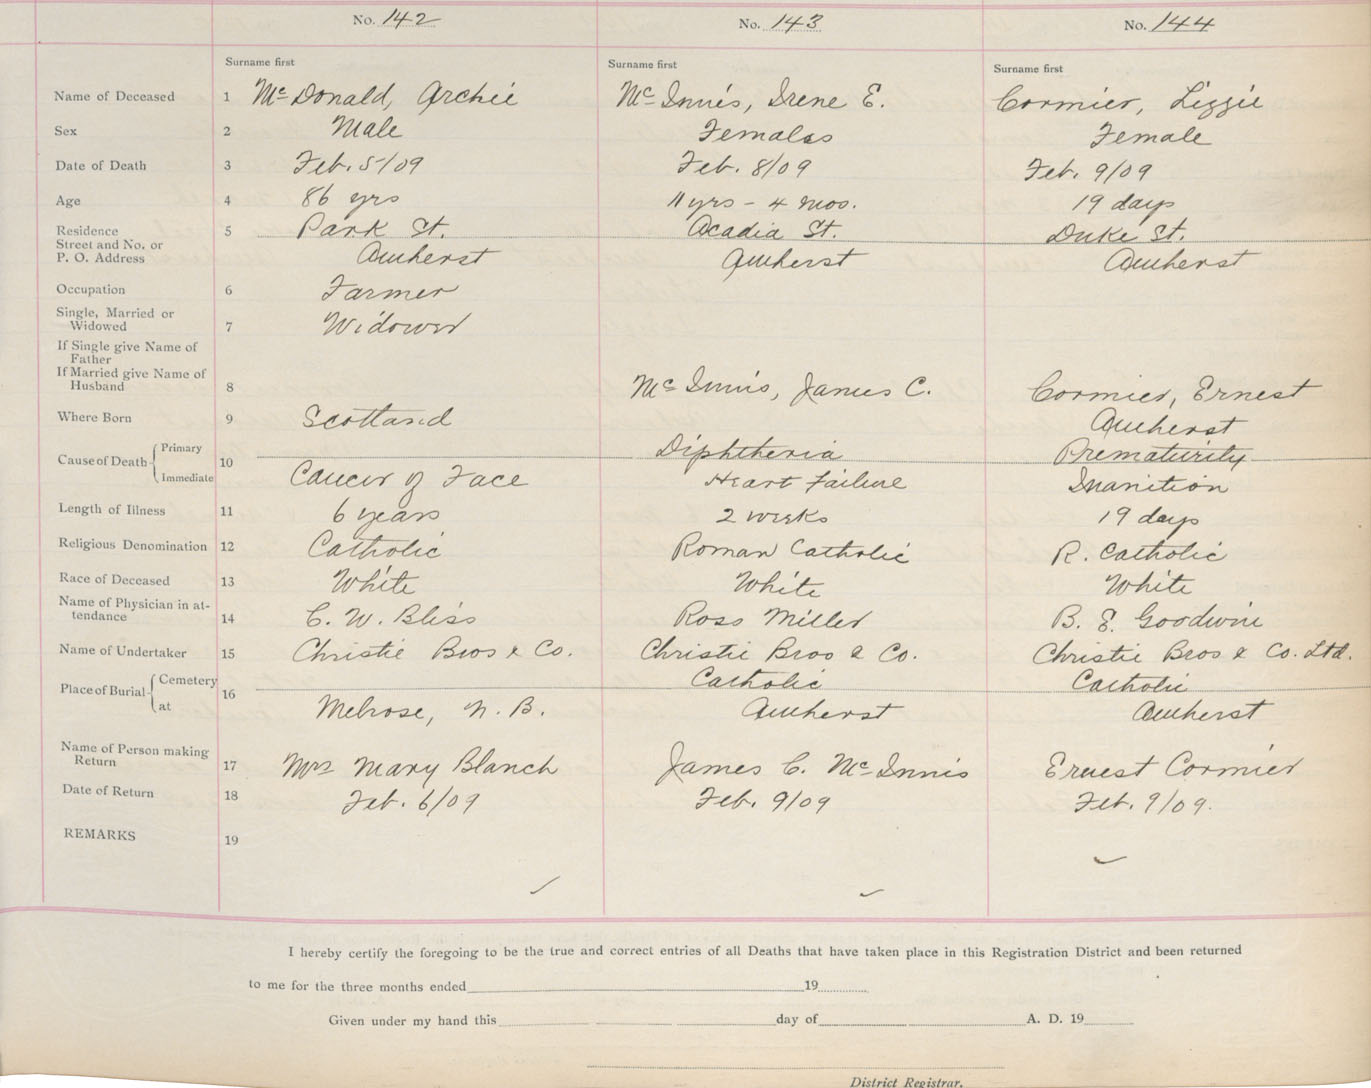 No. 142 No. 143 No. 144
Surname first Surname first Surname first
Name of Deceased 1 McDonald, Archie McInnis, Irene E. Cormier, Lizzie
Sex 2 Male Female Female
Date of Death 3 Feb. 5/09 Feb. 8/09 Feb. 9/09
Age 4 86 yrs 11 yrs - 4 mos. 19 days
Residence 5 Park St. Acadia St. Duke St.
Street and No. or
P. O. Address Amherst Amherst Amherst
Occupation 6 Farmer
Single, Married or
Widowed 7 Widower
If Single give Name of
Father
If Married give Name of
Husband 8 McInnis, James C. Cormier, Ernest
Where Born 9 Scotland Amherst
Cause of Death Primary 10 Diphtheria Prematurity
Immediate Cancer of Face Heart Failure Inanition
Length of Illness 11 6 years 2 weeks 19 days
Religious Denomination 12 Catholic Roman Catholic R. Catholic
Race of Deceased 13 White White White
Name of Physician in at-
tendance 14 C. W. Bliss Ross Miller B. E. Goodwin
Name of Undertaker 15 Christie Bros & Co. Christie Bros & Co. Christie Bros & Co. Ltd.
Place of Burial Cemetery 16 Catholic Catholic
at Melrose, N. B. Amherst Amherst
Name of Person making
Return 17 Mrs Mary Blanch James C. McInnis Ernest Cormier
Date of Return 18 Feb. 6/09 Feb. 9/09 Feb. 9/09.
REMARKS 19
I hereby certify the foregoing to be the true and correct entries of all Deaths that have taken place in this Registration District and been returned
to me for the three months ended 19
Given under my hand this day of A. D. 19
District Registrar.